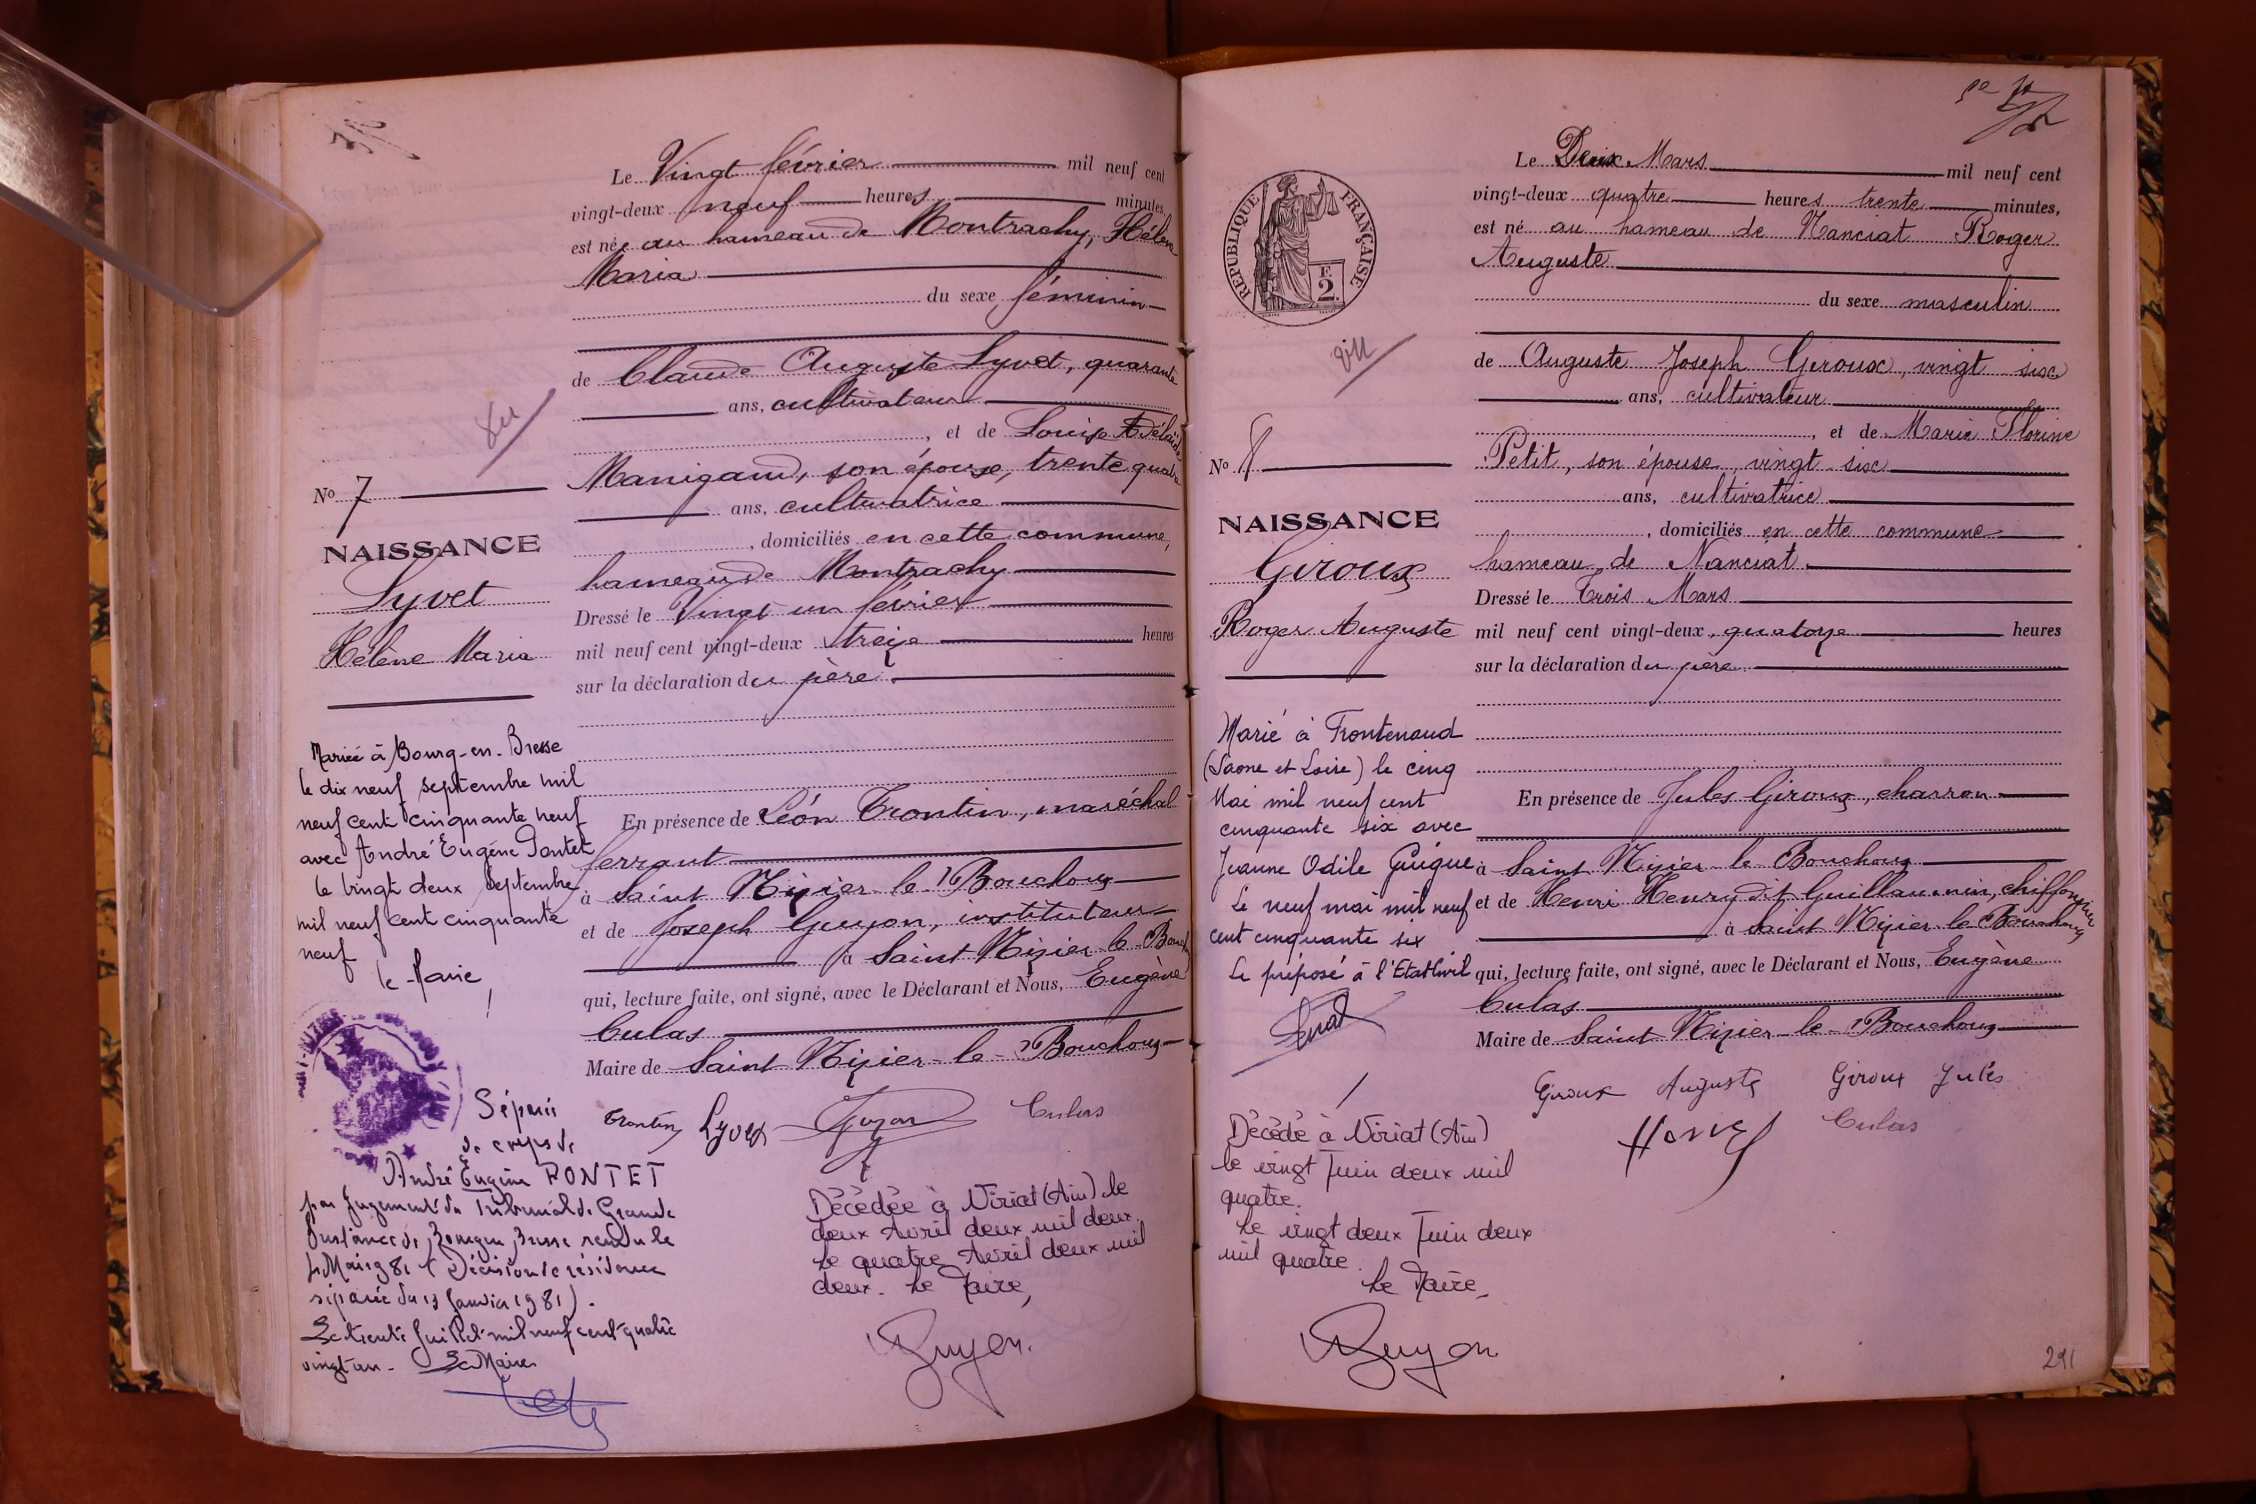 Le Vingt février mil neuf cent
vingt-deux neuf heures minutes,
est née au hameau de Montrachy, Hélène
Maria
du sexe féminin
de Claude Auguste Lyvet, quarante
ans, cultivateur
, et de Louise Adélaïde
Manigand, son épouse, trente quatre
ans, cultivatrice
, domiciliés en cette commune,
hameau de Montrachy
Dressé le Vingt un février
mil neuf cent vingt-deux treize heures
sur la déclaration du père
En présence de Léon Trontin, maréchal
ferrant
à Saint Nizier le Bouchoux
et de Joseph Guyon, instituteur
à Saint Nizier le Bouch
qui, lecture faite, ont signé, avec le Déclarant et Nous, Eugène
Culas
Maire de Saint Nizier-le-Bouchoux
Trontin Lyvet Guyon Culas
No 7
NAISSANCE
Lyvet
Hélène Maria
Mariée à Bourg-en-Bresse
le dix neuf septembre mil
neuf cent cinquante neuf
avec André Eugène Pontet
le vingt deux septembre
mil neuf cent cinquante
neuf
le Maire,
Séparée
de corps de
André Eugène PONTET
par Jugement du Tribunal de Grande
Instance de Bourg en Bresse rendu le
Mai 1981 (Décision de résidence
séparée du 13 Janvier 1981).
Le trente Juillet mil neuf cent quatre
vingt un. Le Maire
Décédée à Viriat (Ain) le
deux Avril deux mil deux.
Le quatre Avril deux mil
deux. Le Maire,
Guyon.
RÉPUBLIQUE FRANÇAISE
F.
2.
Le Deux Mars mil neuf cent
vingt-deux quatre heures trente minutes,
est né au hameau de Nanciat Roger
Auguste
du sexe masculin
de Auguste Joseph Giroux, vingt six
ans, cultivateur
, et de Marie Florine
Petit, son épouse, vingt six
ans, cultivatrice
, domiciliés en cette commune
hameau de Nanciat
Dressé le Trois Mars
mil neuf cent vingt-deux, quatorze heures
sur la déclaration du père
En présence de Jules Giroux, charron
à Saint Nizier le Bouchoux
et de Henri Henry dit Guillaumin, chiffonnier
à Saint Nizier le Bouchoux
qui, lecture faite, ont signé, avec le Déclarant et Nous, Eugène
Culas
Maire de Saint Nizier-le-Bouchoux
Giroux Auguste Giroux Jules
Henry Culas
No 8
NAISSANCE
Giroux
Roger Auguste
Marié à Frontenaud
(Saone et Loire) le cinq
Mai mil neuf cent
cinquante six avec
Jeanne Odile Guigue
Le neuf mai mil neuf
cent cinquante six
Le préposé à l'Etat Civil
Décédé à Viriat (Ain)
le vingt Juin deux mil
quatre.
Le vingt deux Juin deux
mil quatre.
Le Maire,
Guyon
291